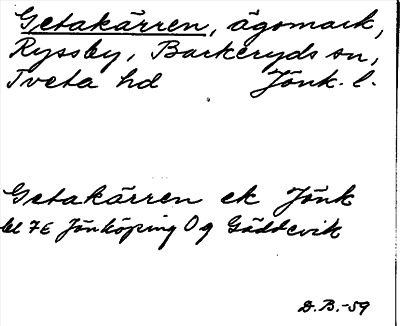 Getakärren, ägomark,
Ryssby, Barkeryds sn,
Tveta hd Jönk. l.
Getakärren ek Jönk
bl 7E Jönköping 0 g Gäddevik
D.B.-59